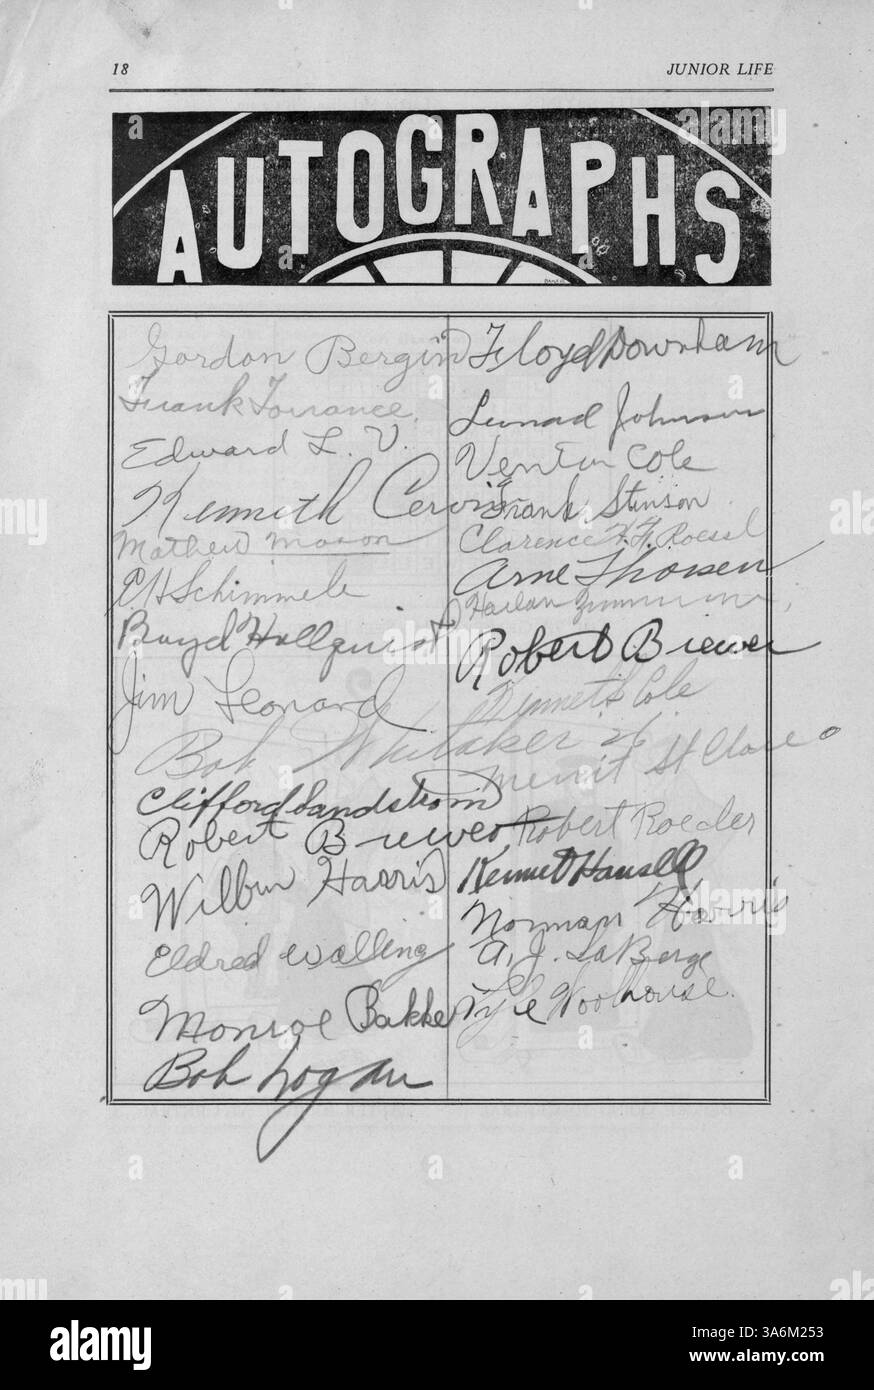 18
JUNIOR LIFE
AUTOGRAPHS
Gordon Bergin
Frank Torrance.
Edward L. V.
Kenneth Cervin
Mathew Mason
C H Schimmele
Boyd Hallquist
Jim Leonard
Bob Whitaker
Clifford Sandstrom
Robert Brewer
Wilbur Harris
Eldred Walling
Monroe Bakke
Bob Logan
Floyd Downham
Leonard Johnson
Cole
Frank Stinson
Clarence Roessl
Arne Thorsen
Harlan Zimmerman,
Robert Brewer
Kenneth Cole
Merrit St Clare
Robert Roeder
Kennet Hansell
Norman Harris
A. J. LaBarge
Lyle Woolhouse.
alamy
Image ID: 3A6M253
www.alamy.com